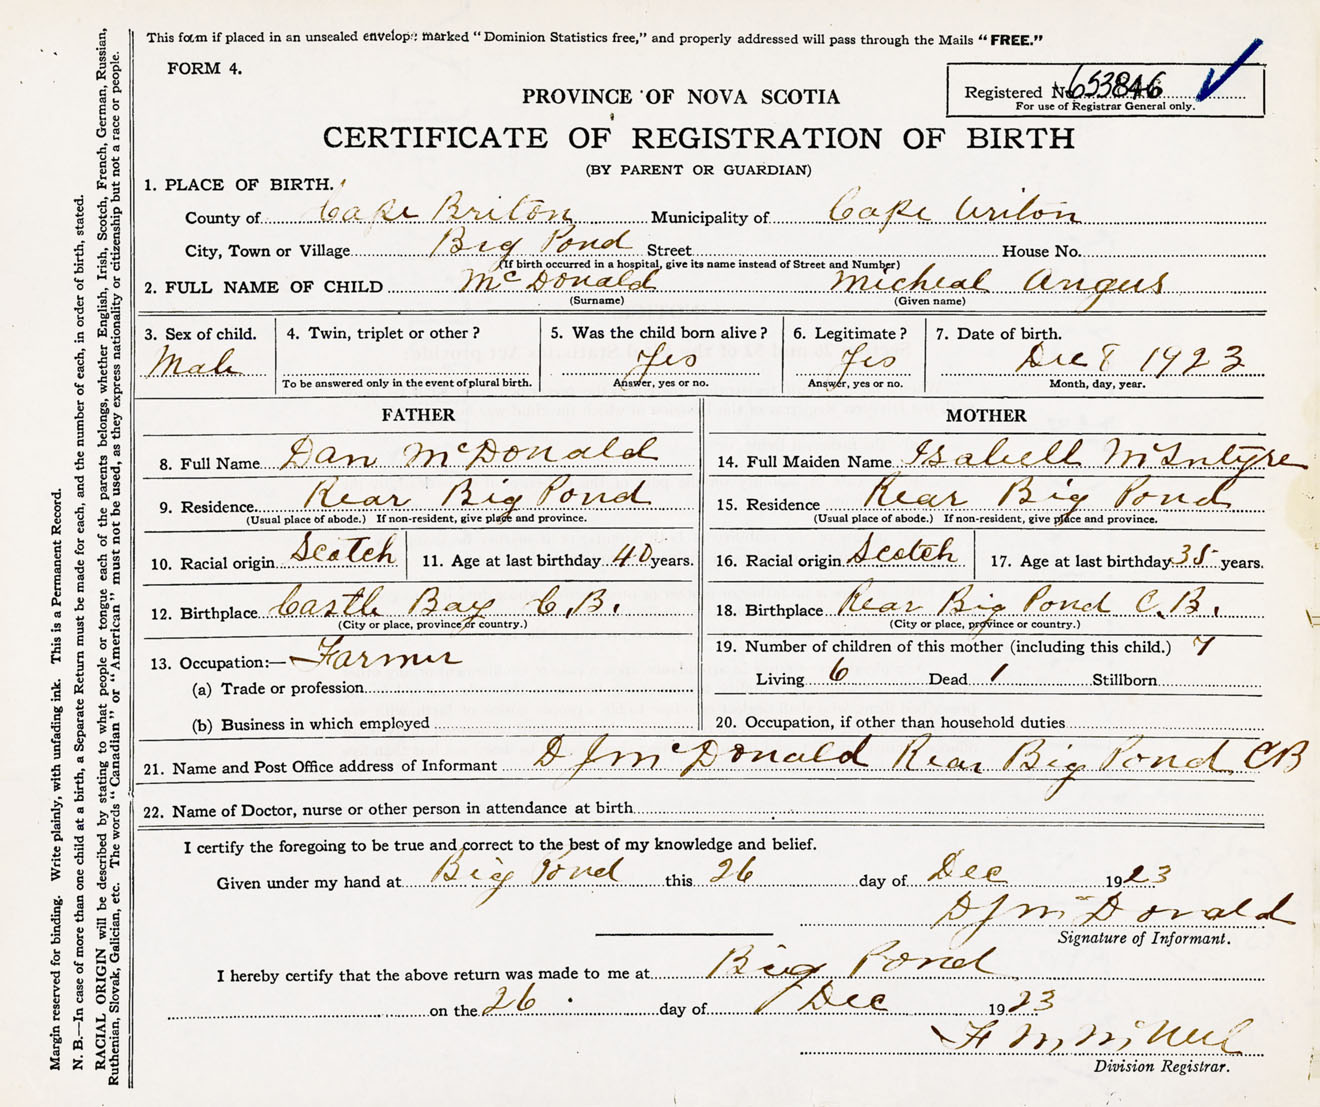 This form if placed in an unsealed envelope marked "Dominion Statistics free," and properly addressed will pass through the Mails "FREE."
FORM 4.
Registered No. 653846
For use of Registrar General only.
PROVINCE OF NOVA SCOTIA
CERTIFICATE OF REGISTRATION OF BIRTH
(BY PARENT OR GUARDIAN)
1. PLACE OF BIRTH.
County of Cape Briton Municipality of Cape Briton
City, Town or Village Big Pond Street House No.
(If birth occurred in a hospital, give its name instead of Street and Number)
2. FULL NAME OF CHILD McDonald Micheal Angus
(Surname) (Given name)
3. Sex of child. 4. Twin, triplet or other? 5. Was the child born alive? 6. Legitimate? 7. Date of birth.
Male Yes Yes Dec 8 1923
To be answered only in the event of plural birth. Answer, yes or no. Answer, yes or no. Month, day, year.
FATHER
8. Full Name Dan McDonald
9. Residence Rear Big Pond
(Usual place of abode.) If non-resident, give place and province.
10. Racial origin Scotch 11. Age at last birthday 40 years.
12. Birthplace Castle Bay C.B.
(City or place, province or country.)
13. Occupation:— Farmer
(a) Trade or profession
(b) Business in which employed
MOTHER
14. Full Maiden Name Isabell McIntyre
15. Residence Rear Big Pond
(Usual place of abode.) If non-resident, give place and province.
16. Racial origin Scotch 17. Age at last birthday 35 years.
18. Birthplace Rear Big Pond C.B.
(City or place, province or country.)
19. Number of children of this mother (including this child.) 7
Living 6 Dead 1 Stillborn
20. Occupation, if other than household duties
21. Name and Post Office address of Informant D J McDonald Rear Big Pond CB
22. Name of Doctor, nurse or other person in attendance at birth
I certify the foregoing to be true and correct to the best of my knowledge and belief.
Given under my hand at Big Pond this 26 day of Dec 1923
D J McDonald
Signature of Informant.
I hereby certify that the above return was made to me at Big Pond
on the 26 day of Dec 1923
F M McNeil
Division Registrar.
Margin reserved for binding. Write plainly, with unfading ink. This is a Permanent Record.
N. B.—In case of more than one child at a birth, a Separate Return must be made for each, and the number of each, in order of birth, stated.
RACIAL ORIGIN will be described by stating to what people or tongue each of the parents belongs, whether English, Irish, Scotch, French, German, Russian,
Ruthenian, Slovak, Galician, etc. The words "Canadian" or "American" must not be used, as they express nationality or citizenship but not a race or people.